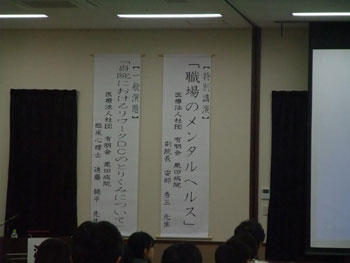 【特別講演】
「職場のメンタルヘルス」
医療法人社団 有朋会 栗田病院
副院長 先生
【一般演題】
「当院におけるリワークDCのとりくみについて」
医療法人社団 有朋会 栗田病院
臨床心理士 遠藤 先生